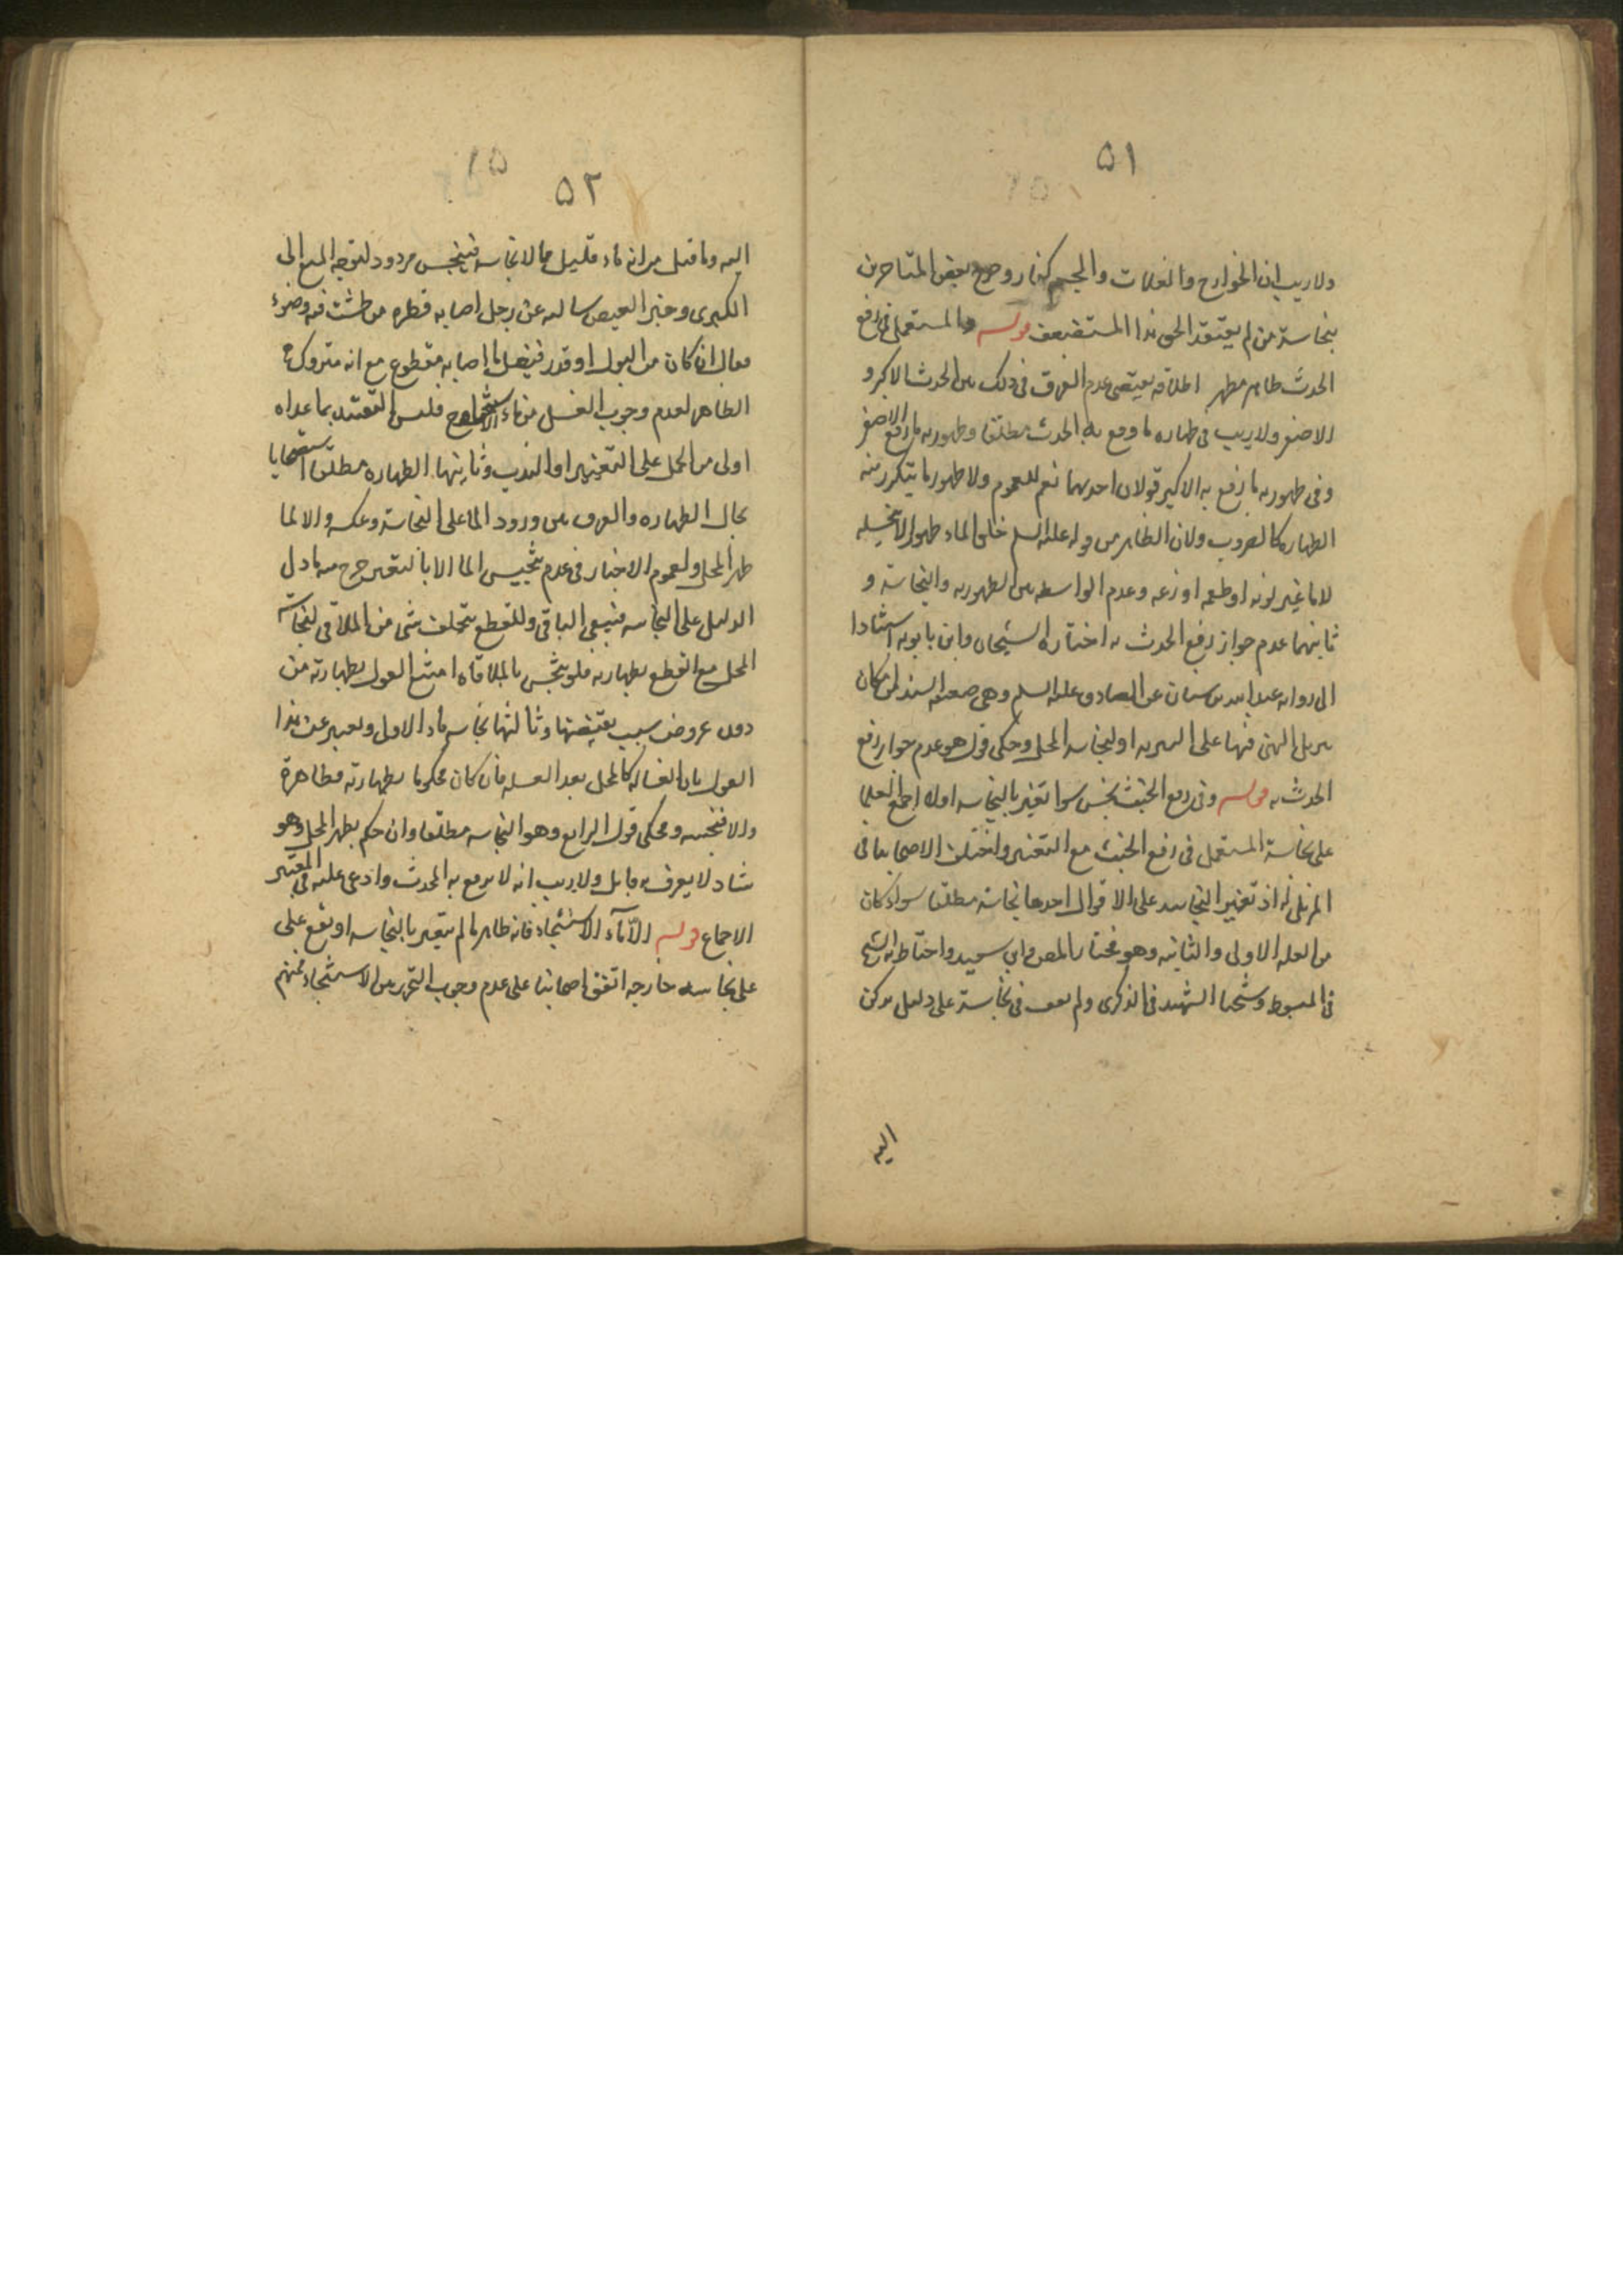 ٥١
ولا ريب ان الخوارج والغلات والمجسم كفار وصرح بعض المتاخرين
بنجاسة من لم يعتقد الحق عدا المستضعف قوله والمستعمل في رفع
الحدث طاهر مطهر اطلاقه يقتضى عدم الفرق في ذلك بين الحدث الاكبر و
الاصغر ولا ريب في طهاره ما رفع به الحدث مطلقا وطهوريه ما رفع الاصغر
وفي طهوريه ما رفع به الاكبر قولان احدهما نعم للعموم ولا طهور ما يتكرر منه
الطهاره كالضروب ولان الطاهر من قوله عليه السلم خلق الماء طهورا لا ينجسه
لا ما غير لونه او طعمه او ريحه وعدم الواسطه بين الطهوريه والنجاسة و
ثانيهما عدم جواز رفع الحدث به اختاره الشيخان وابن بابويه استنادا
الى روايه عبد الله بن سنان عن الصادق عليه السلم وهي ضعيفه السند امكان
تنزيل النهى فيها على التنزيه او لنجاسه المحل وحكى قول هو عدم جواز رفع
الحدث به قوله وفي رفع الخبث نجس سوا تغير بالنجاسه اولا اجمع العلما
على نجاسة المستعمل في رفع الخبث مع التغير واختلف الاصحاب في
المزيل له اذ تغير النجاسه على الاقوال احدها نجاسة مطلقا سواء كان
من الغسله الاولى والثانيه وهو مختار المصنف وابن سعيد واحتاط به الشيخ
في المبسوط وشيخنا الشهيد في الذكرى ولم نقف في نجاسة على دليل يركن
اليه
٥٢
اليه وما قيل من انه ماء قليل لاقا نجاسه فينجس مردود لتوجه المنع الى
الكبرى وخبر العيص سالته عن رجل اصابه قطره من طشت فيه وضوء
فقال ان كان من البول او قذر فيغسل ما اصابه مقطوع مع انه متروك
الظاهر لعدم وجوب الغسل من ماء الاستنجاء فليس التقييد بما عداه
اولى من الحمل على التغير او الندب وثانيها الطهاره مطلقا استصحابا
بحال الطهاره والفرق بين ورود الما على النجاسة وعكسه والا لما
طهر المحل ولعموم الاخبار في عدم تنجيس الما الا بالتغير خرج منه ما دل
الدليل على النجاسه فيبقى الباقي وللقطع بتخلف شى من الملاقى لنجاسة
المحل مع القطع بطهارته فلو ينجس بالملاقاه امتنع القول بطهارته من
دون عروض سبب يقتضيها وثالثها نجاسه ماء الاولى ويعبر عن هذا
القول بان الغساله كالمحل بعد الغسله فان كان محكوما بطهارته فطاهرة
والا فنجسه ويحكى قول الرابع وهو النجاسه مطلقا وان حكم بطهر المحل وهو
شاذ لا يعرف به قايل ولا ريب انه لا يرفع به الحدث وادعى عليه في المعتبر
الاجماع قوله الا ماء الاستنجاء فانه طاهر ما لم يتغير بالنجاسه او تقع على
على نجاسه خارجه اتفق اصحابنا على عدم وجوب التحرز من الاستنجاء فمنهم